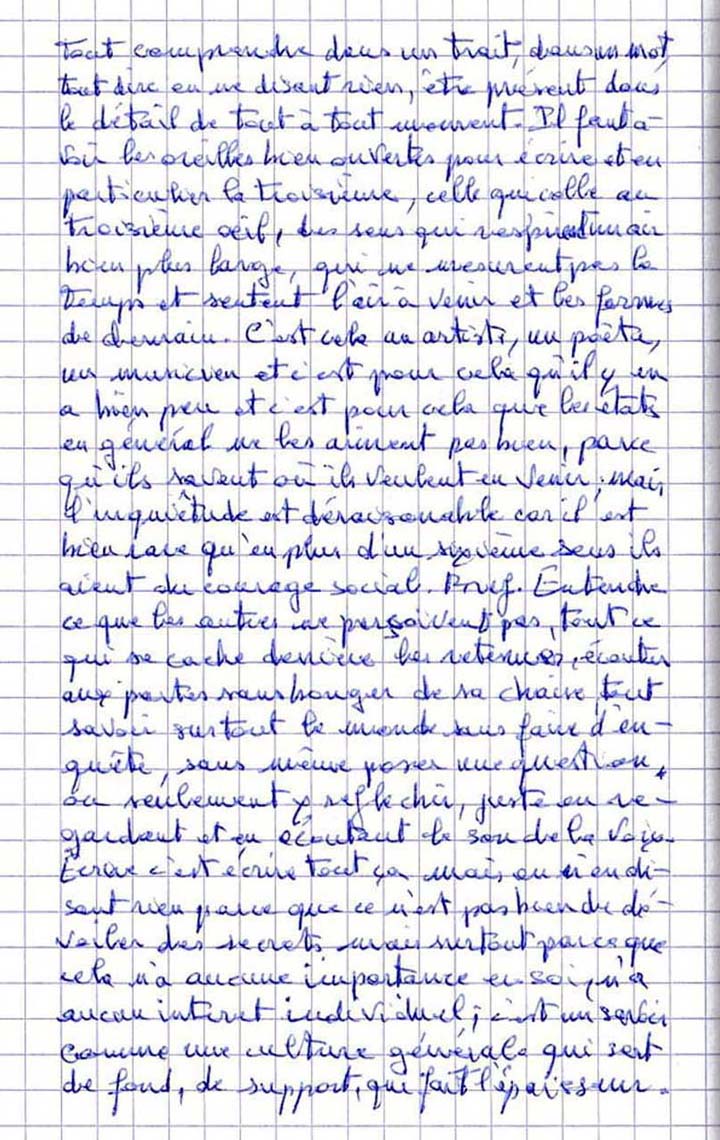 tout comprendre dans un trait, dans un mot,
tout dire en ne disant rien, être présent dans
le détail de tout à tout moment. Il faut a-
voir les oreilles bien ouvertes pour écrire et en
particulier la troisième, celle qui colle au
troisième œil, des sens qui respirent un air
bien plus large, qui ne mesurent pas le
temps et sentent l'air à venir et les formes
de demain. C'est cela un artiste, un poète,
un musicien et c'est pour cela qu'il y en
a bien peu et c'est pour cela que les états
en général ne les aiment pas bien, parce
qu'ils savent où ils veulent en venir ; mais
l'inquiétude est déraisonnable car il est
bien rare qu'en plus d'un sixième sens ils
aient du courage social. Bref. Entendre
ce que les autres ne perçoivent pas, tout ce
qui se cache derrière les retenues, écouter
aux portes sans bouger de sa chaise, tout
savoir sur tout le monde sans faire d'en-
quête, sans même poser une question,
ou seulement y réfléchir, juste en re-
gardant et en écoutant le son de la voix.
Écrire c'est écrire tout ça mais en n'en di-
sant rien parce que ce n'est pas bien de dé-
voiler des secrets mais surtout parce que
cela n'a aucune importance en soi, n'a
aucun interet individuel ; c'est un savoir
comme une culture générale qui sert
de fond, de support, qui fait l'épaisseur.